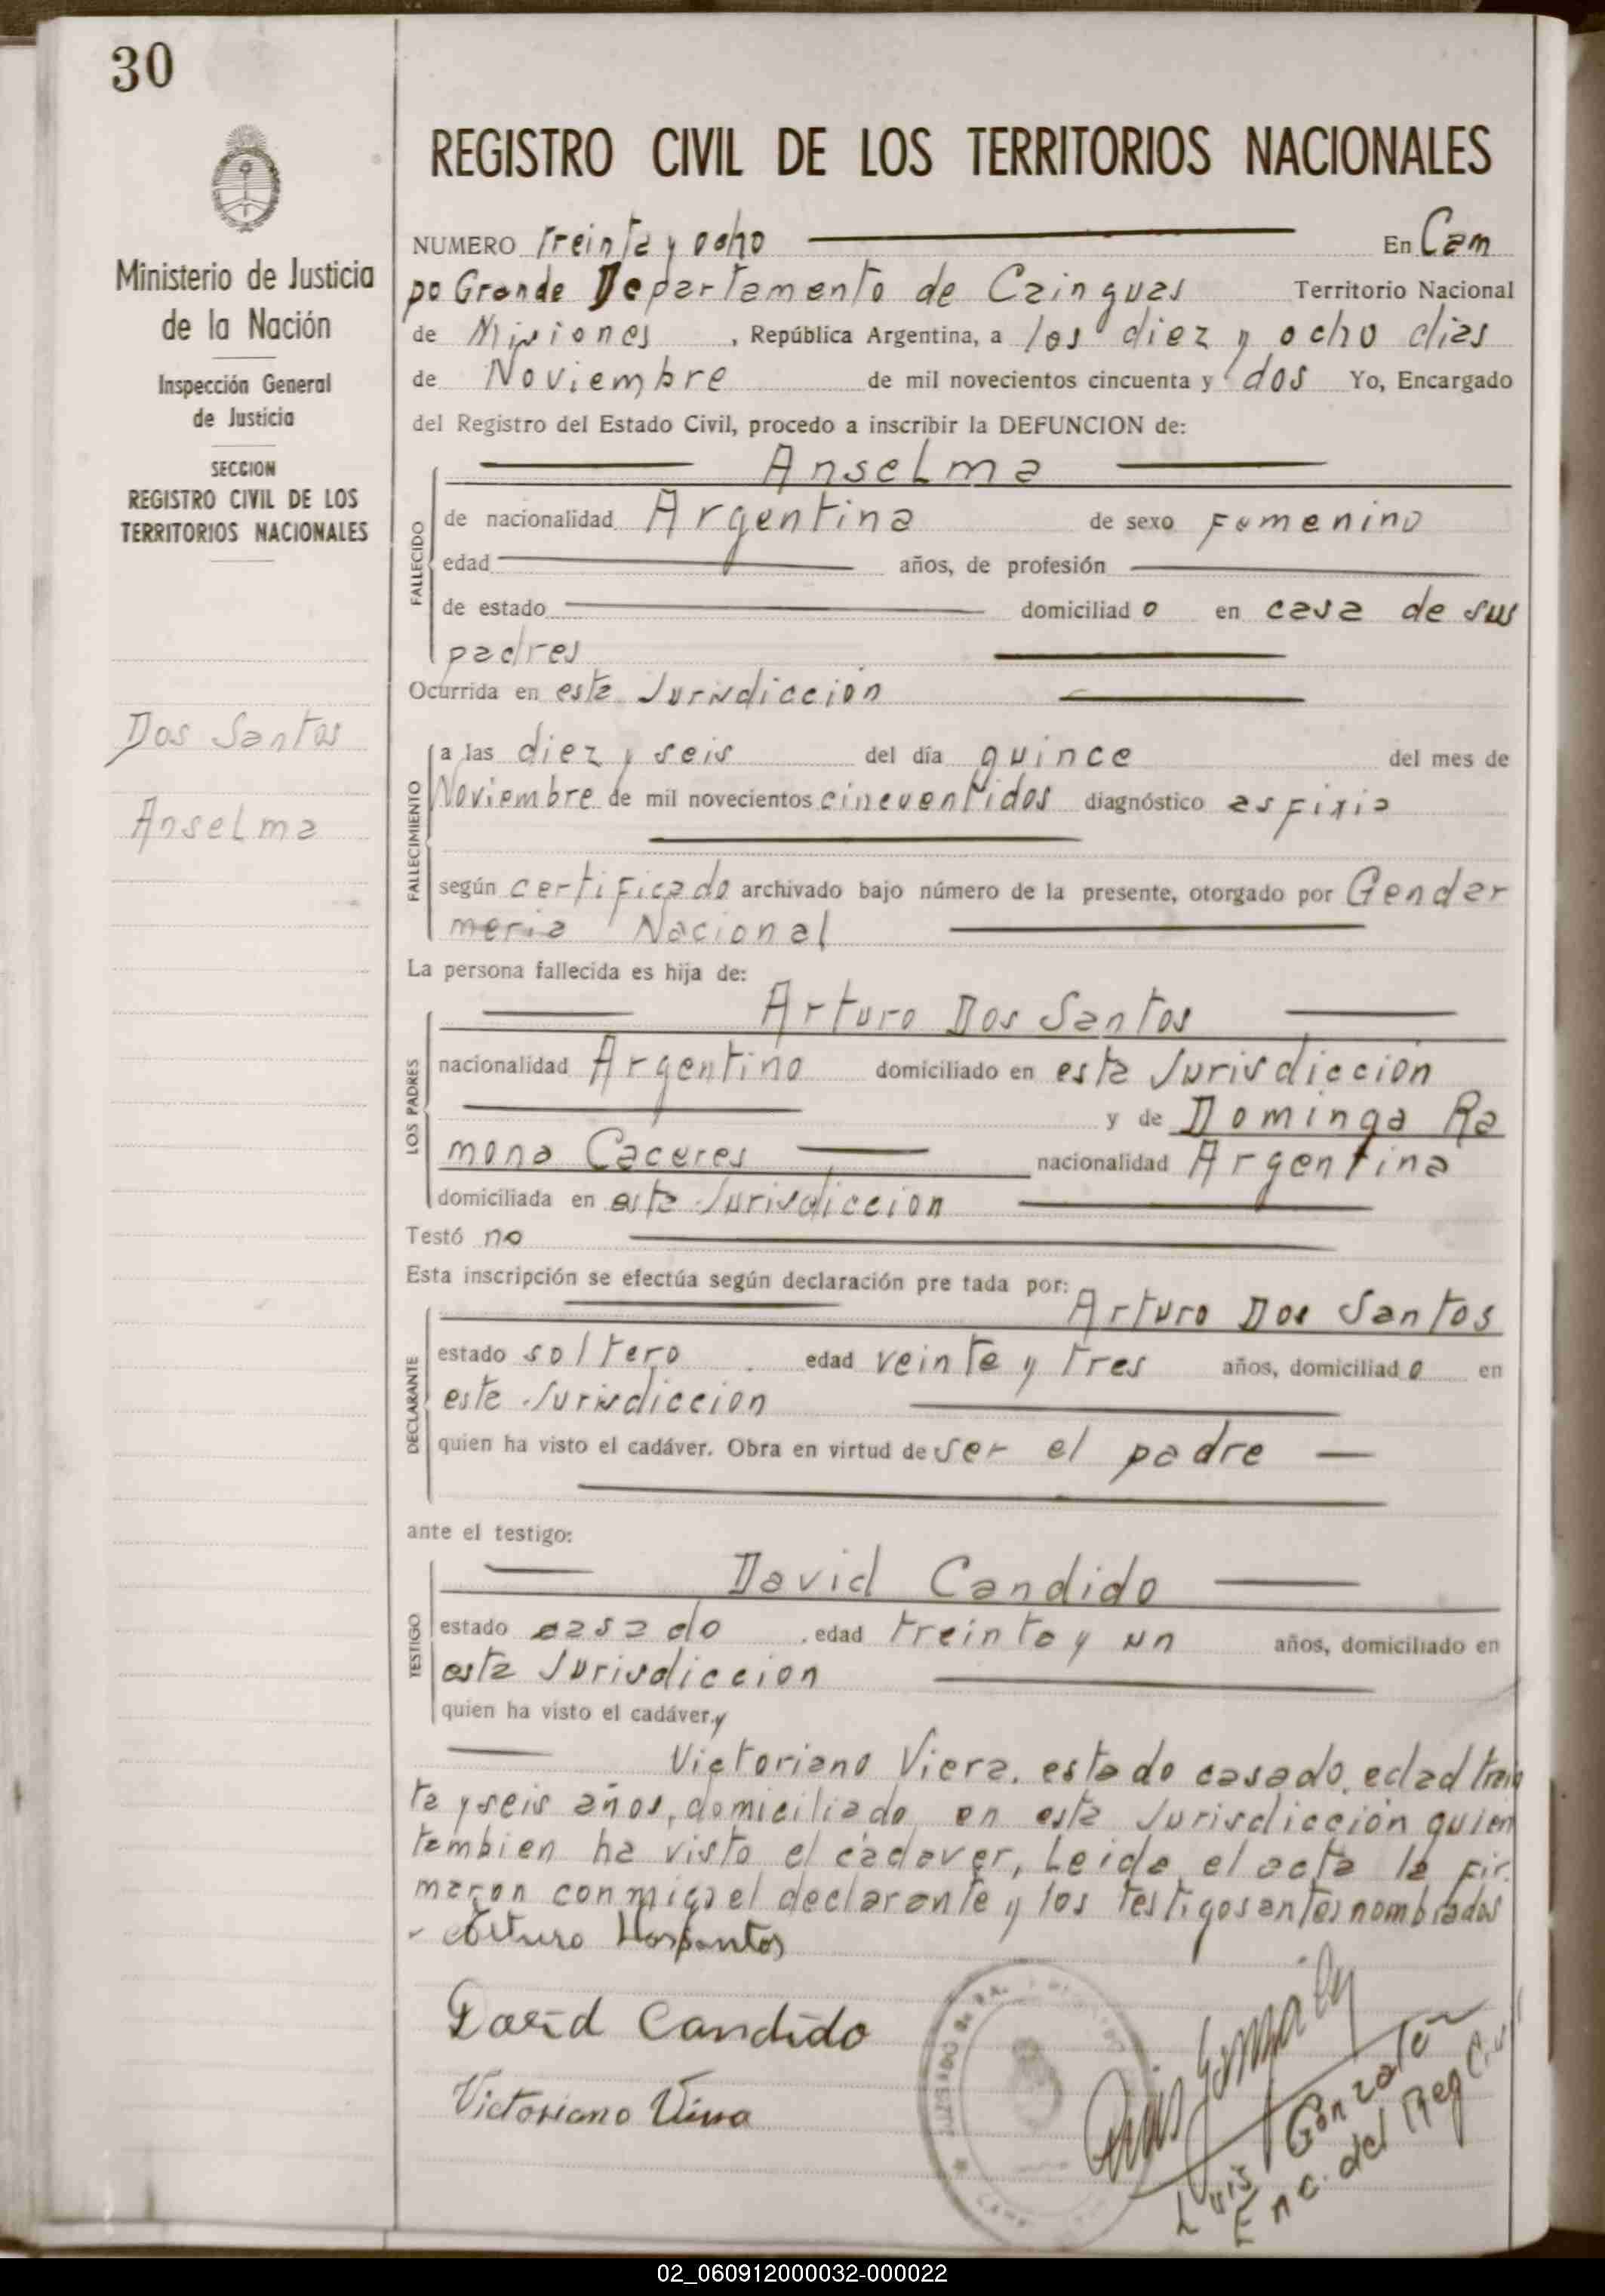 30
REGISTRO CIVIL DE LOS TERRITORIOS NACIONALES
Ministerio de Justicia
de la Nación
Inspección General
de Justicia
SECCION
REGISTRO CIVIL DE LOS
TERRITORIOS NACIONALES
Dos Santos
Anselma
NUMERO Treinta y ocho En Cam
po Grande Departamento de Cainguas Territorio Nacional
de Misiones , República Argentina, a los diez y ocho dias
de Noviembre de mil novecientos cincuenta y dos Yo, Encargado
del Registro del Estado Civil, procedo a inscribir la DEFUNCION de:
FALLECIDO
Anselma
de nacionalidad Argentina de sexo Femenino
edad años, de profesión
de estado domiciliad o en casa de sus
padres
Ocurrida en esta Jurisdicción
FALLECIMIENTO
a las diez y seis del día quince del mes de
Noviembre de mil novecientos cincuentidos diagnóstico asfixia
según certificado archivado bajo número de la presente, otorgado por Gendar
meria Nacional
La persona fallecida es hija de:
LOS PADRES
Arturo Dos Santos
nacionalidad Argentino domiciliado en esta Jurisdicción
y de Dominga Ra
mona Caceres nacionalidad Argentina
domiciliada en esta Jurisdiccion
Testó no
Esta inscripción se efectúa según declaración pre tada por:
DECLARANTE
Arturo Dos Santos
estado soltero edad veinte y tres años, domiciliad o en
este Jurisdiccion
quien ha visto el cadáver. Obra en virtud de ser el padre
ante el testigo:
TESTIGO
David Candido
estado casado , edad treinta y un años, domiciliado en
esta Jurisdiccion
quien ha visto el cadáver. y
Victoriano Viera, estado casado, edad trein
ta y seis años, domiciliado en esta Jurisdicción quien
tambien ha visto el cadaver, Leida el acta la fir
maron conmigo el declarante y los testigos antes nombrados
Arturo Dos santos
David Candido
Victoriano Viera
Luis Gonzalez
Enc. del Reg Civil
02_060912000032-000022